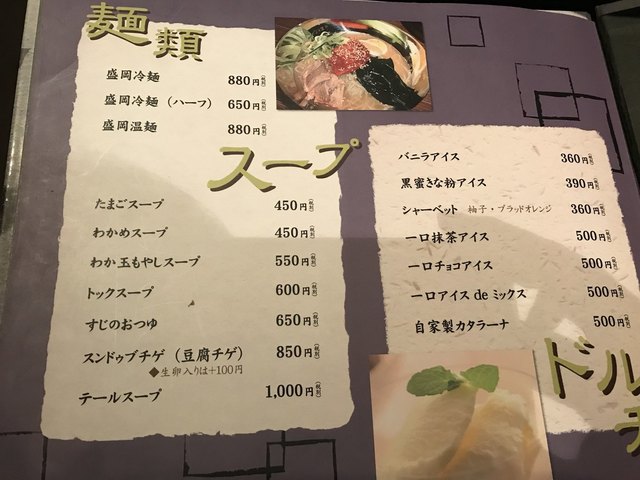 麺類
盛岡冷麺 880円(税別)
盛岡冷麺(ハーフ) 650円(税別)
盛岡温麺 880円(税別)
スープ
たまごスープ 450円(税別)
わかめスープ 450円(税別)
わか玉もやしスープ 550円(税別)
トックスープ 600円(税別)
すじのおつゆ 650円(税別)
スンドゥブチゲ(豆腐チゲ) 850円(税別)
◆生卵入りは+100円
テールスープ 1,000円(税別)
バニラアイス 360円(税別)
黒蜜きな粉アイス 390円(税別)
シャーベット 柚子・ブラッドオレンジ 360円(税別)
一口抹茶アイス 500円(税別)
一口チョコアイス 500円(税別)
一口アイス de ミックス 500円(税別)
自家製カタラーナ 500円(税別)
ドル